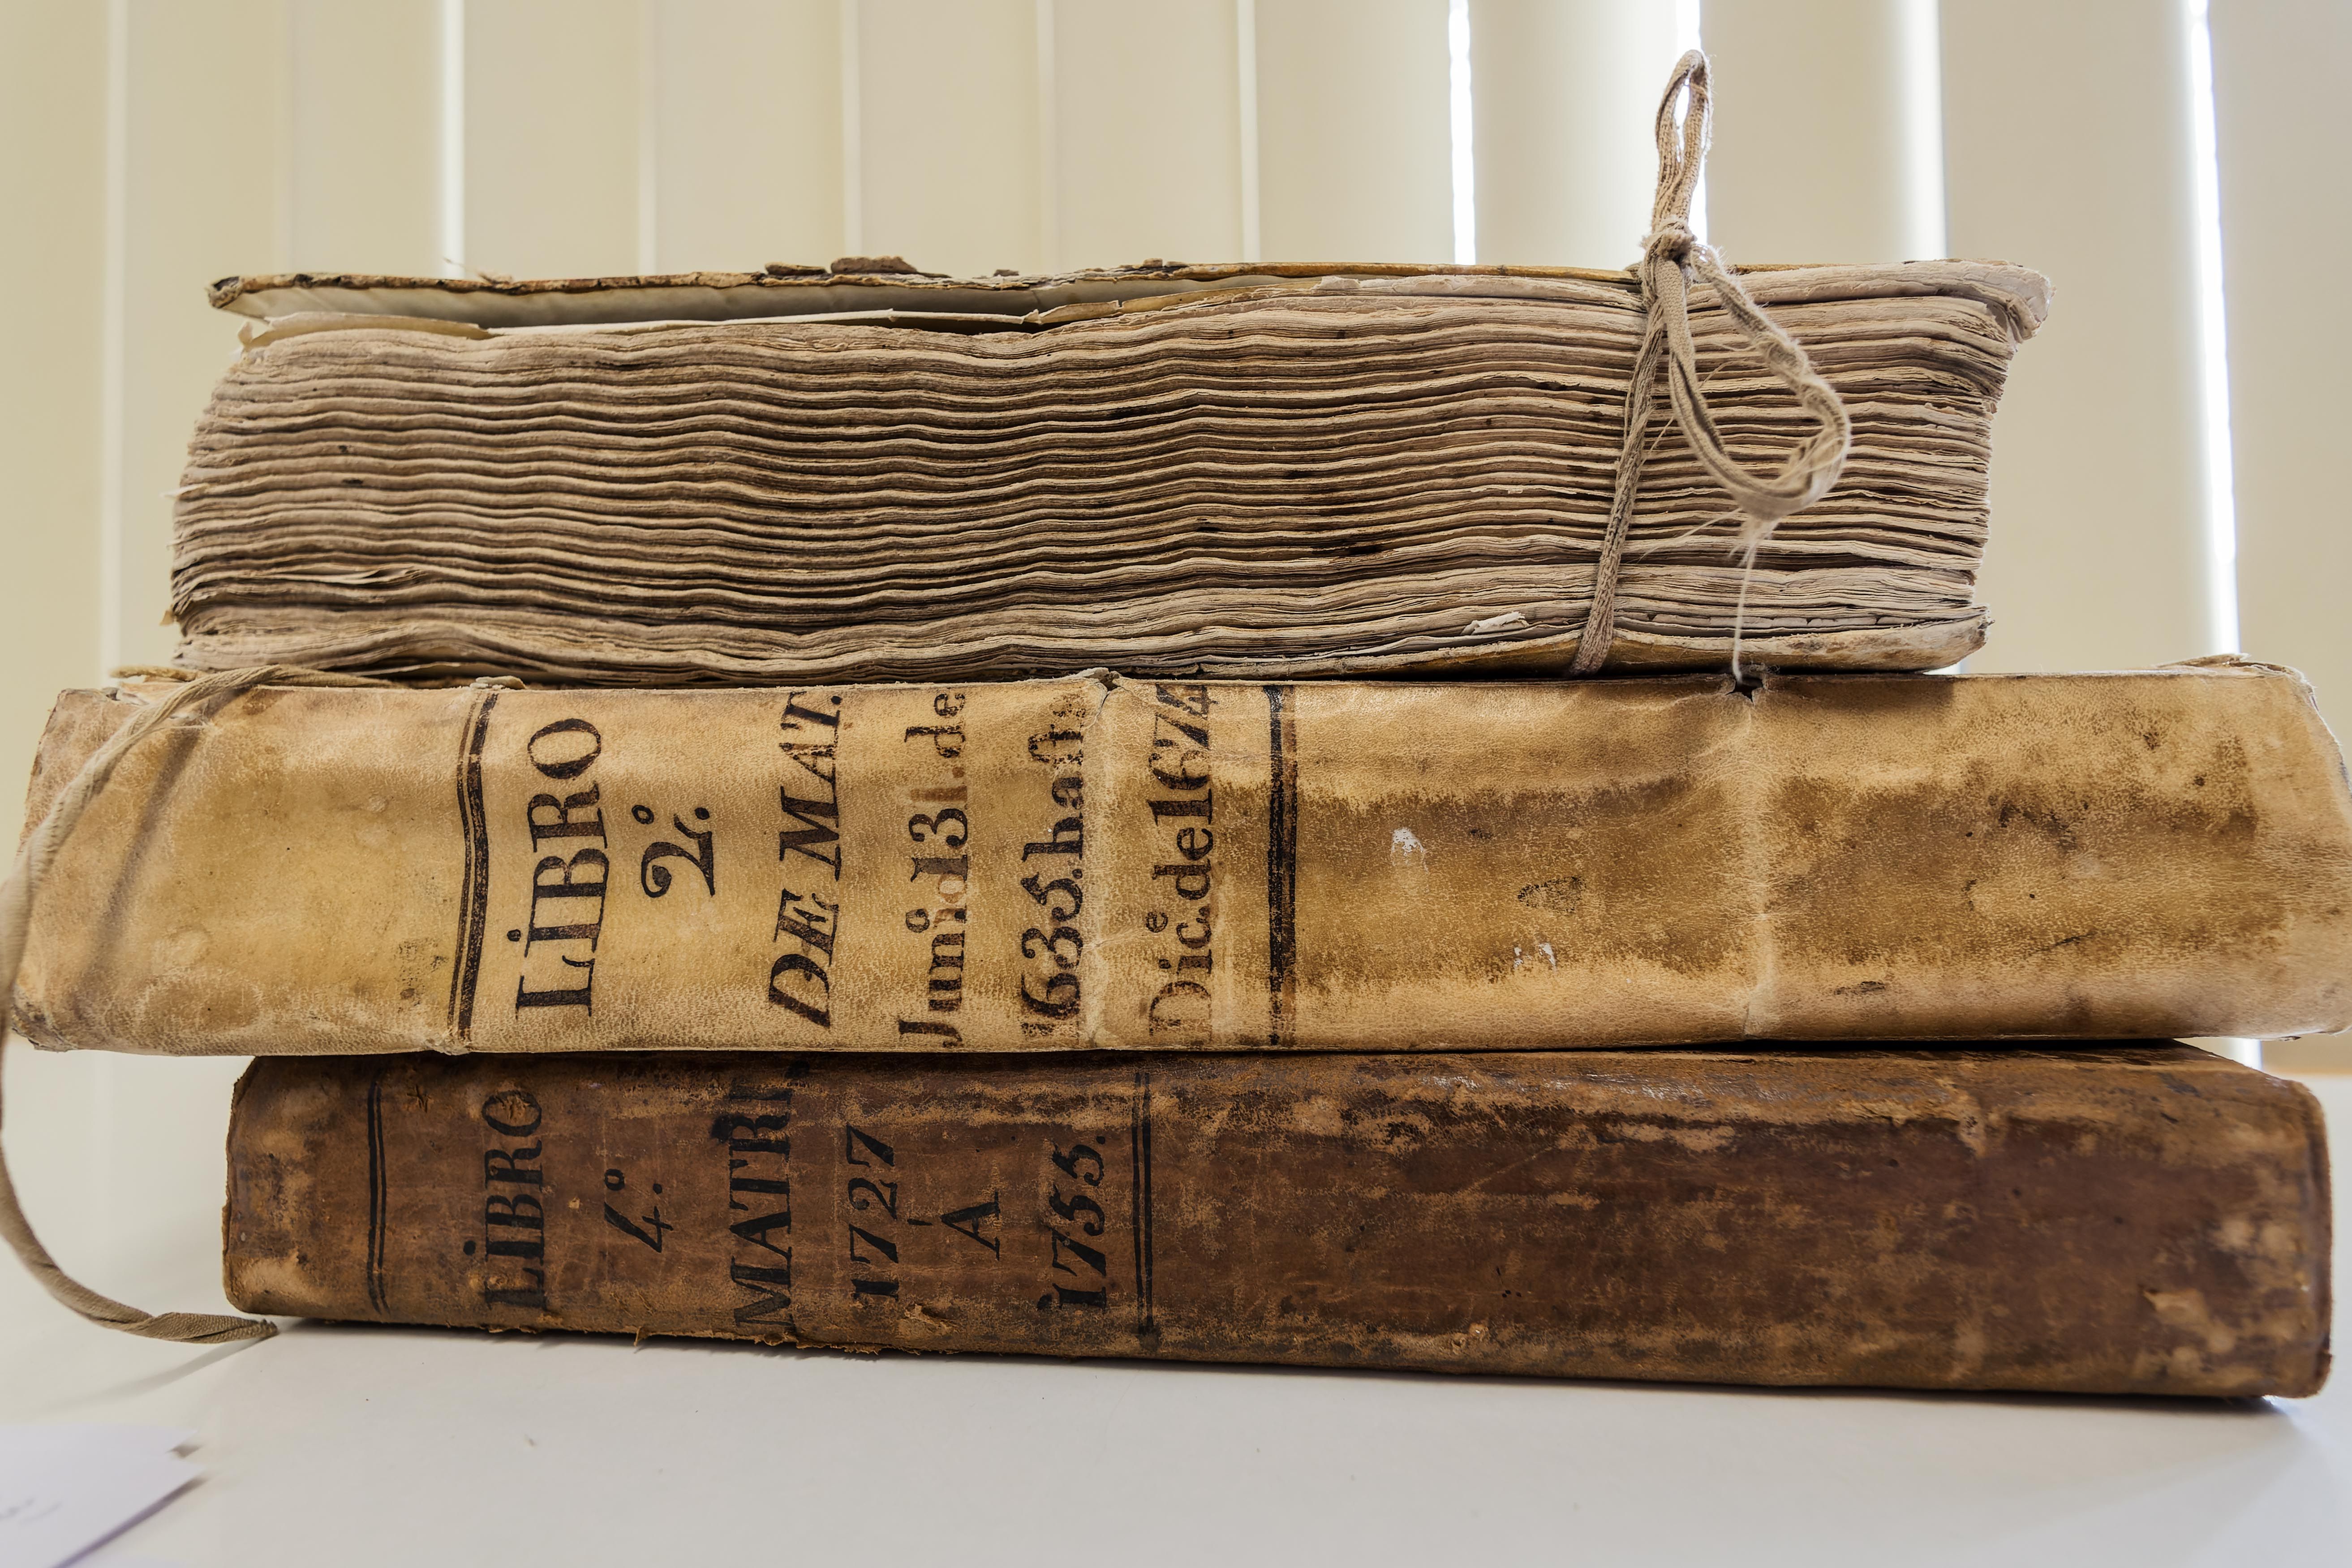 LIBRO
2º.
DE MAT.
Junio 13 1. de
1635. hasta
Dice. de 1674
LIBRO
4º.
MATRI.
1727
À
1755.